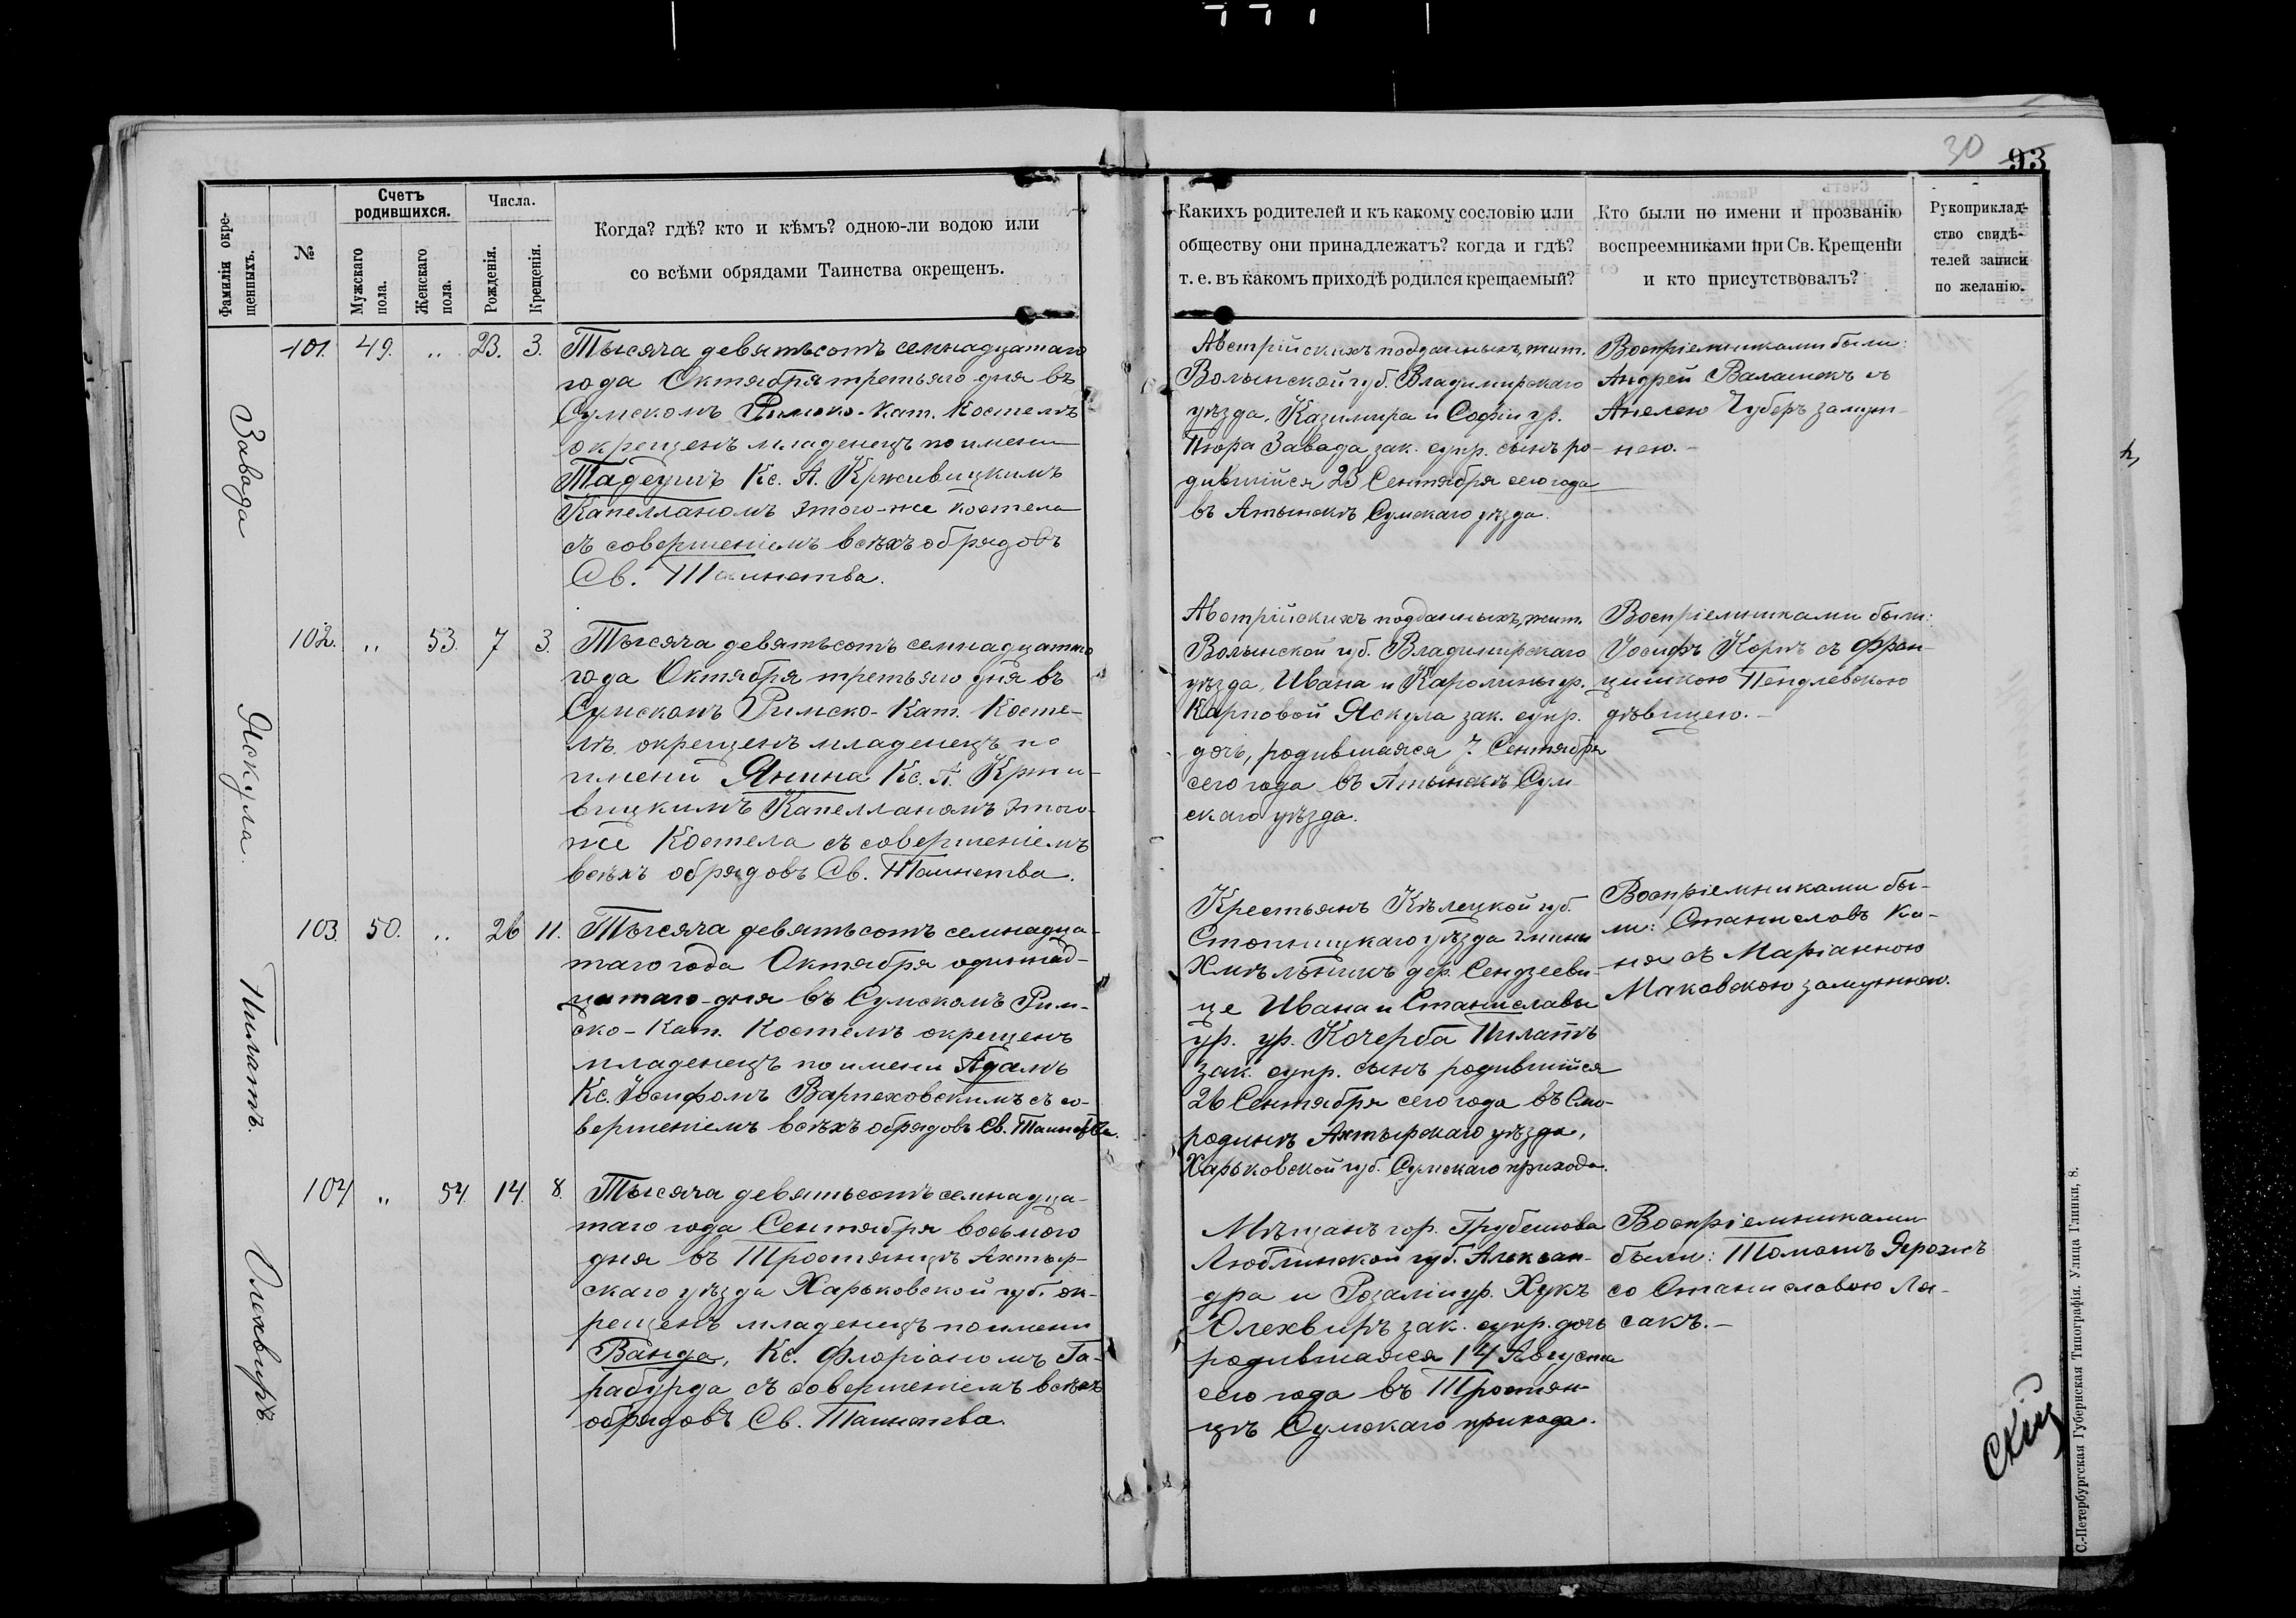 30 93
Фамиліи окре-
щенныхъ.
№
Счетъ
родившихся.
Мужскаго
пола.
Женскаго
пола.
Числа.
Рожденія.
Крещенія.
Когда? гдѣ? кто и кѣмъ? одною-ли водою или
со всѣми обрядами Таинства окрещенъ.
Какихъ родителей и къ какому сословію или
обществу они принадлежатъ? когда и гдѣ?
т. е. въ какомъ приходѣ родился крещаемый?
Кто были по имени и прозванію
воспреемниками при Св. Крещеніи
и кто присутствовалъ?
Рукоприклад-
ство свидѣ-
телей записи
по желанію.
Завада
101. 49. „ 23. 3.
Тысяча девятьсотъ семнадцатаго
года Октября третьяго дня въ
Сумскомъ Римско-Кат. Костелѣ
окрещенъ младенецъ по имени
Тадеушъ Кс. А. Крживицкимъ
Капелланомъ этого-же костела
съ совершеніемъ всѣхъ обрядовъ
Св. Таинства.
Австрійскихъ подданныхъ, жит.
Волынской губ. Владимирскаго
уѣзда, Казимира и Софіи ур.
Пюра Завада зак. супр. сынъ ро-
дившійся 23 Сентября сего года
въ Сумскаго уѣзда.
Воспріемниками были:
Андрей Валашекъ съ
Анелею Губеръ замуж-
нею.-
Яскула.
102. „ 53. 7 3.
Тысяча девятьсотъ семнадцатаго
года Октября третьяго дня въ
Сумскомъ Римско-Кат. Косте-
лѣ окрещенъ младенецъ по
имени Янина Кс. А. Кржи-
вицкимъ Капелланомъ этого-
же Костела съ совершеніемъ
всѣхъ обрядовъ Св. Таинства.
Австрійскихъ подданныхъ, жит.
Волынской губ. Владимирскаго
уѣзда, Ивана и Каролины ур.
Карповой Яскула зак. супр.
дочь, родившаяся 7. Сентября
сего года въ Сум-
скаго уѣзда.
Воспріемниками были:
Іосифъ Корпъ съ Фран-
цишкою Пендлевскою
дѣвицею.-
Пилатъ.
103. 50. „ 26 11.
Тысяча девятьсотъ семнадца-
таго года Октября одиннад-
цатаго дня въ Сумскомъ Рим-
ско-Кат. Костелѣ окрещенъ
младенецъ по имени Адамъ
Кс. Іосифомъ Варпеховскимъ съ со-
вершеніемъ всѣхъ обрядовъ Св. Таинства.
Крестьянъ Кѣлецкой губ.
Стопницкаго уѣзда гмины
Хмѣльникъ дер. Сендзееви-
це Ивана и Станиславы
ур. ур. Кочерба Пилатъ
зак. супр. сынъ родившійся
26 Сентября сего года въ Смо-
родинѣ Ахтырскаго уѣзда,
Харьковской губ. Сумскаго прихода.
Воспріемниками бы-
ли: Станиславъ Ка-
ня съ Маріанною
Маковскою замужнею.
Олехвиръ.
104 „ 54. 14. 8.
Тысяча девятьсотъ семнадца-
таго года Сентября восьмого
дня въ Тростянцѣ Ахтыр-
скаго уѣзда Харьковской губ. ок-
рещенъ младенецъ по имени
Ванда, Кс. Флоріаномъ Га-
рабурда съ совершеніемъ всѣхъ
обрядовъ Св. Таинства.
Мѣщанъ гор. Грубешова
Люблинской губ. Алексан-
дра и Розаліи ур. Хукъ
Олехвиръ зак. супр. дочь
родившаяся 14 Августа
сего года въ Тростян-
цѣ Сумскаго прихода.
Воспріемниками
были: Томашъ Ярохъ
со Станиславою Ля-
сакъ.-
С.-Петербургская Губернская Типографія. Улица Глинки, 8.